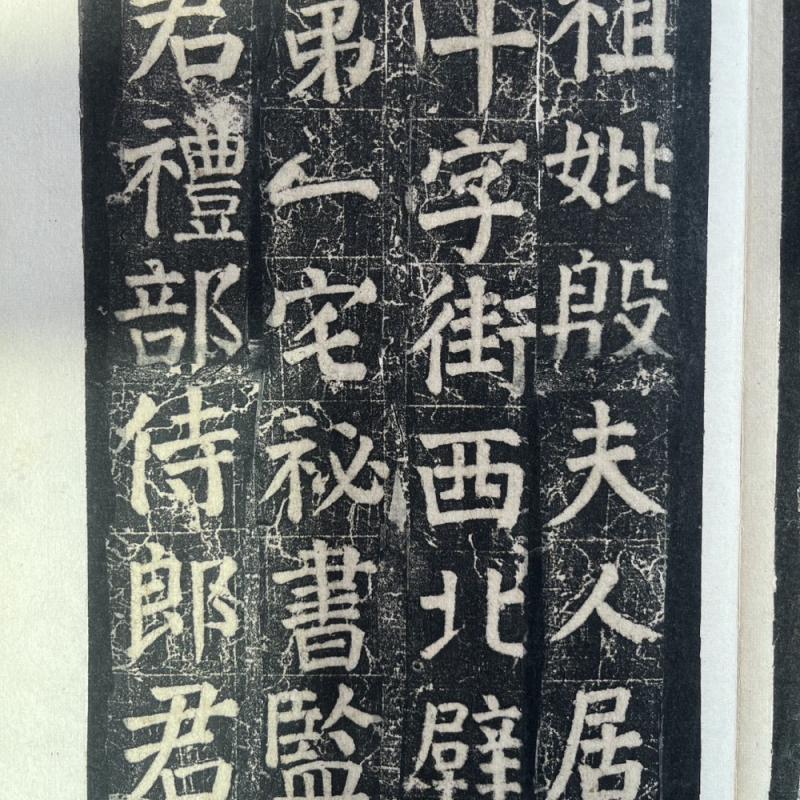 祖妣殷夫人居
什字街西北壁
弟一宅祕書監
君禮部侍郎君